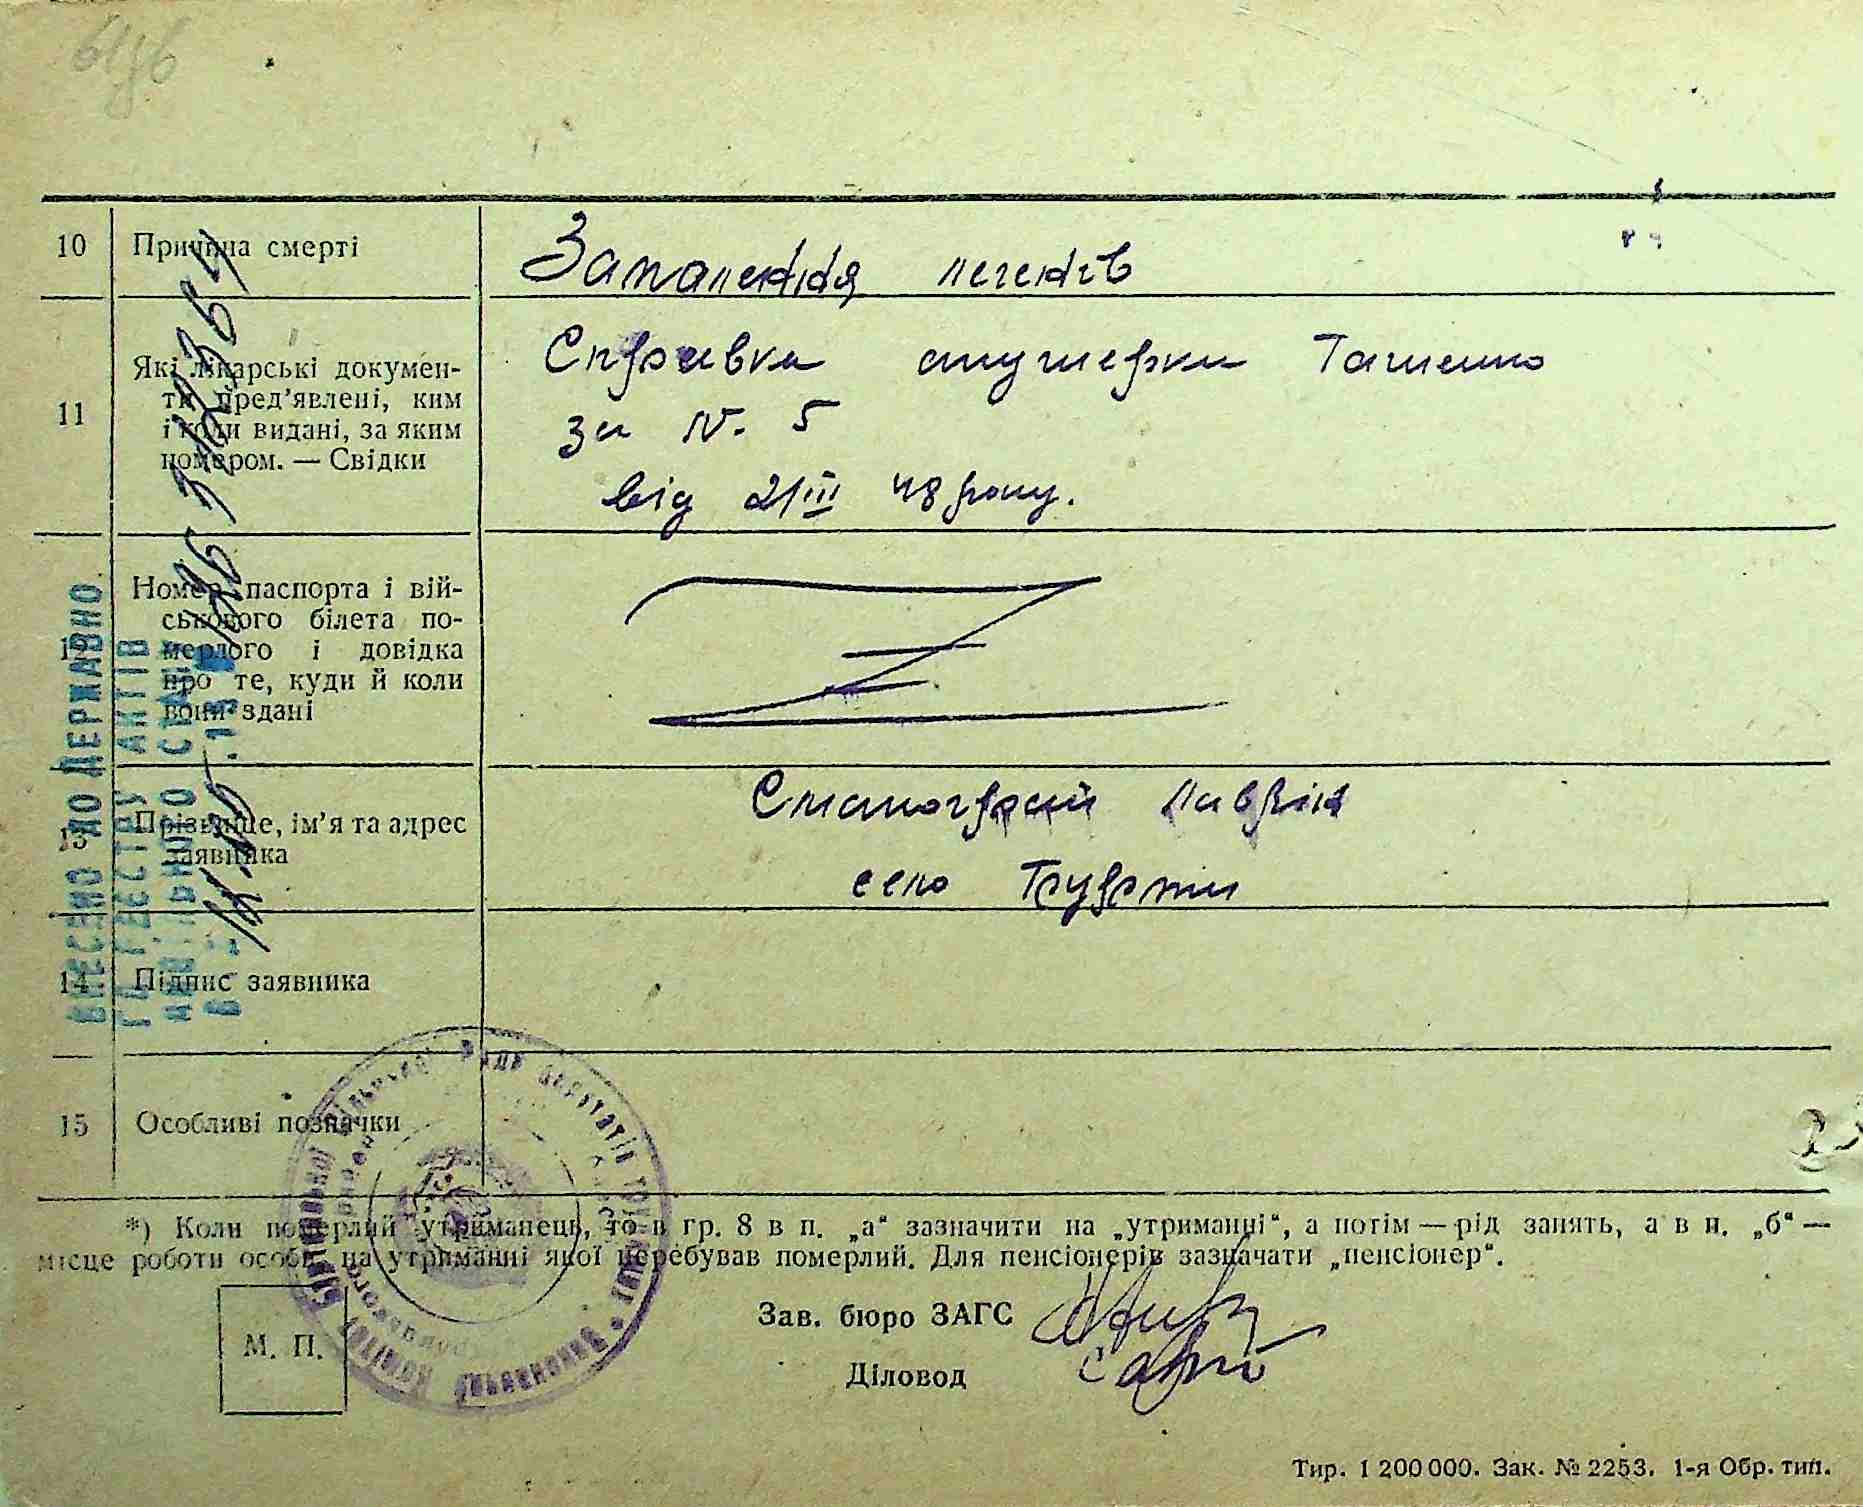 10 Причина смерті
Запалення легенів
11 Які лікарські докумен-
ти пред’явлені, ким
і коли видані, за яким
номером. — Свідки
Справка акушерки
за N. 5
від 21/III 48 року.
12 Номер паспорта і вій-
ськового білета по-
мерлого і довідка
про те, куди й коли
вони здані
13 Прізвище, ім’я та адрес
заявника
село
14 Підпис заявника
15 Особливі позначки
*) Коли померлий утриманець, то в гр. 8 в п. „а“ зазначити на „утриманні“, а потім — рід занять, а в п. „б“ —
місце роботи особи, на утриманні якої перебував померлий. Для пенсіонерів зазначати „пенсіонер“.
Зав. бюро ЗАГС
М. П.
Діловод
Тир. 1 200 000. Зак. № 2253. 1-я Обр. тип.
ВНЕСЕНО ДО ДЕРЖАВНО
ГО РЕЄСТРУ АКТІВ